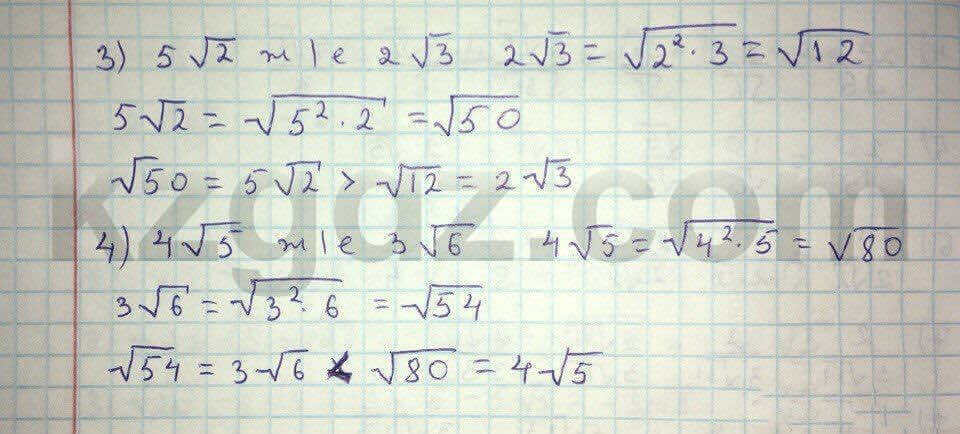 3) 5√2 ж/е 2√3 2√3 = √2²·3 = √12
5√2 = √5²·2 = √50
√50 = 5√2 > √12 = 2√3
kzgdz.com
4) 4√5 ж/е 3√6 4√5 = √4²·5 = √80
3√6 = √3²·6 = √54
√54 = 3√6 < √80 = 4√5